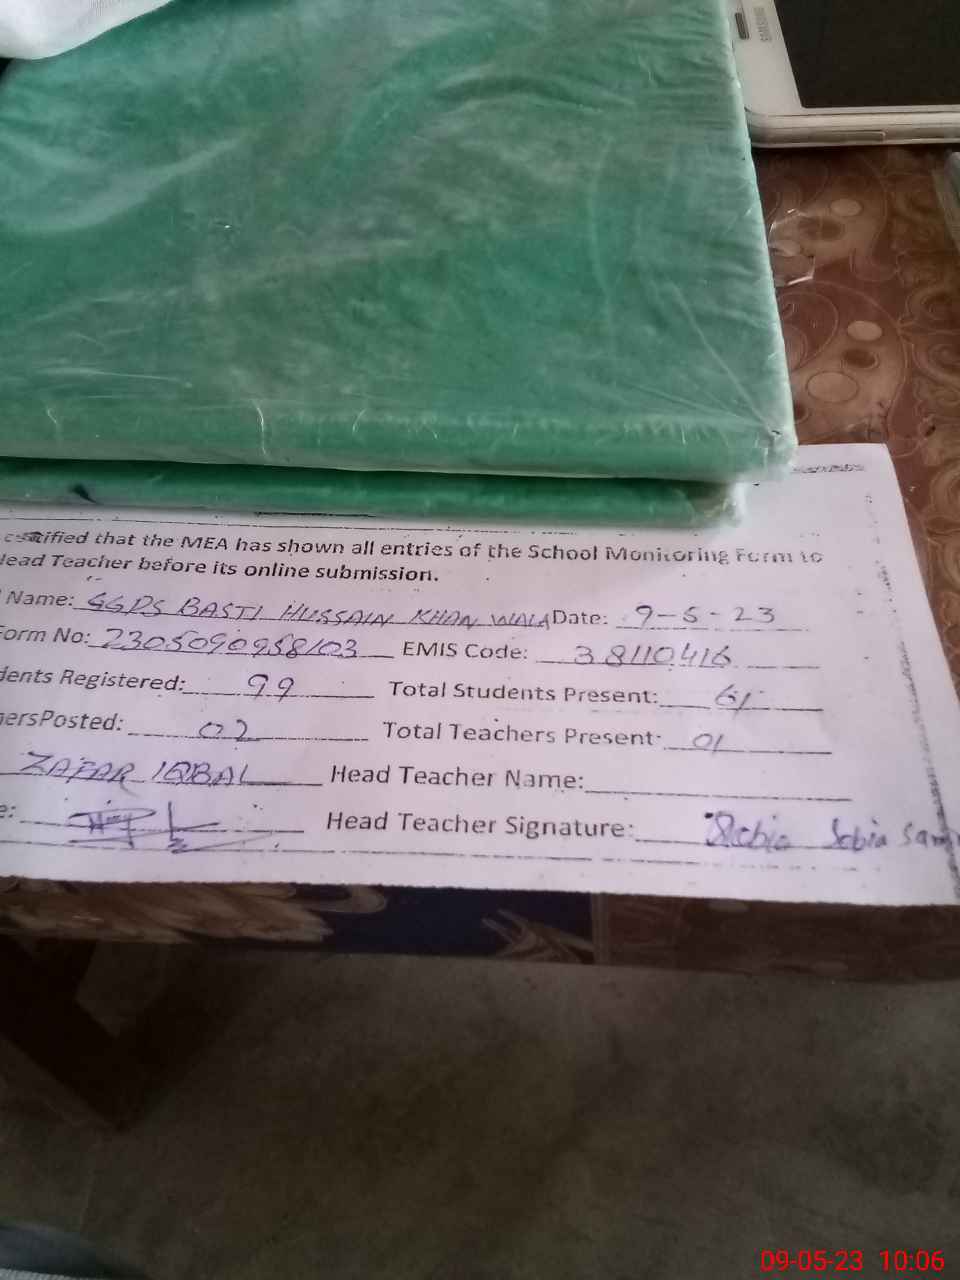 SAMSUNG
certified that the MEA has shown all entries of the School Monitoring Form to
Head Teacher before its online submission.
Name: GGPS BASTI HUSSAIN KHAN WALA Date: 9-5-23
Form No: 2305090958103 EMIS Code: 38110416
dents Registered: 99 Total Students Present: 61
ersPosted: 02 Total Teachers Present: 01
ZAFAR IQBAL Head Teacher Name:
e: Head Teacher Signature: Sobia
09-05-23 10:06